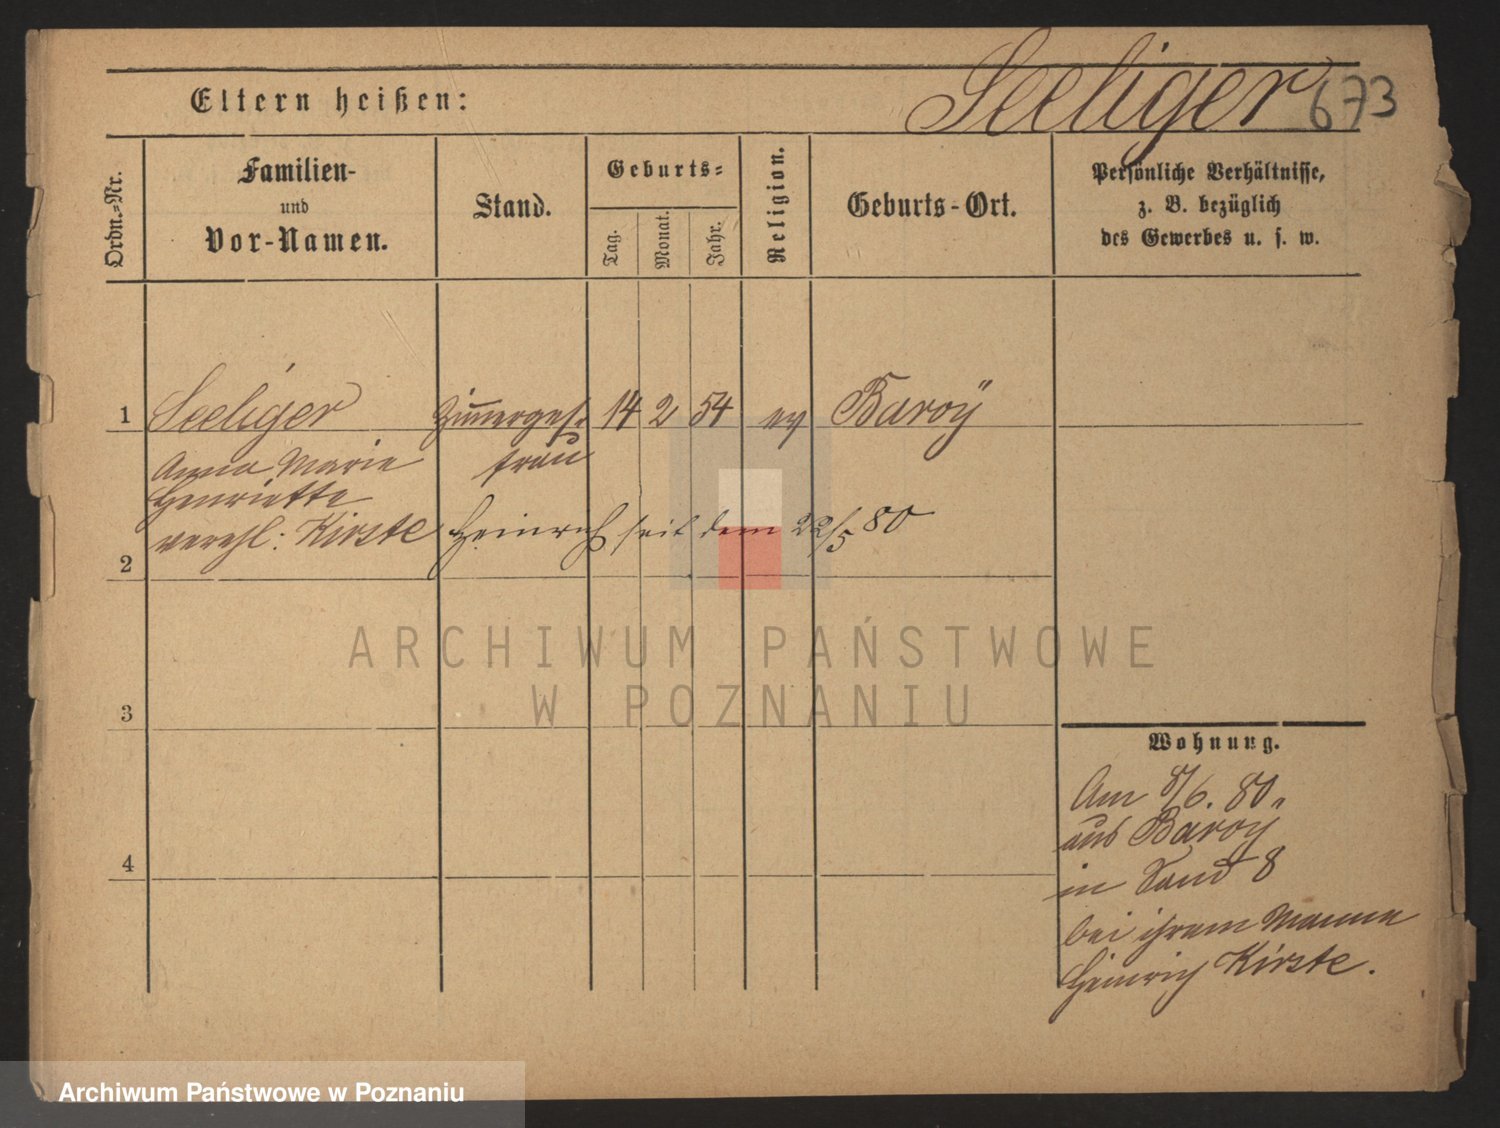 Eltern heißen:
Seeliger
673
Ordn.-Nr.
Familien-
und
Vor-Namen.
Stand.
Geburts-
Tag.
Monat.
Jahr.
Religion.
Geburts-Ort.
Persönliche Verhältnisse,
z. B. bezüglich
des Gewerbes u. s. w.
1 Seeliger Zimergeſ. 14 2 54 ev Baroÿ
Anna Marie frau
Henriette
verehl: Kirste Heinrich seit dem 22/5 80
2
3
4
Wohnung.
Am 8/6. 80.
aus Baroy
in Sand 8
bei ihrem Manne
Heinrich Kirste.
ARCHIWUM PAŃSTWOWE
W POZNANIU
Archiwum Państwowe w Poznaniu